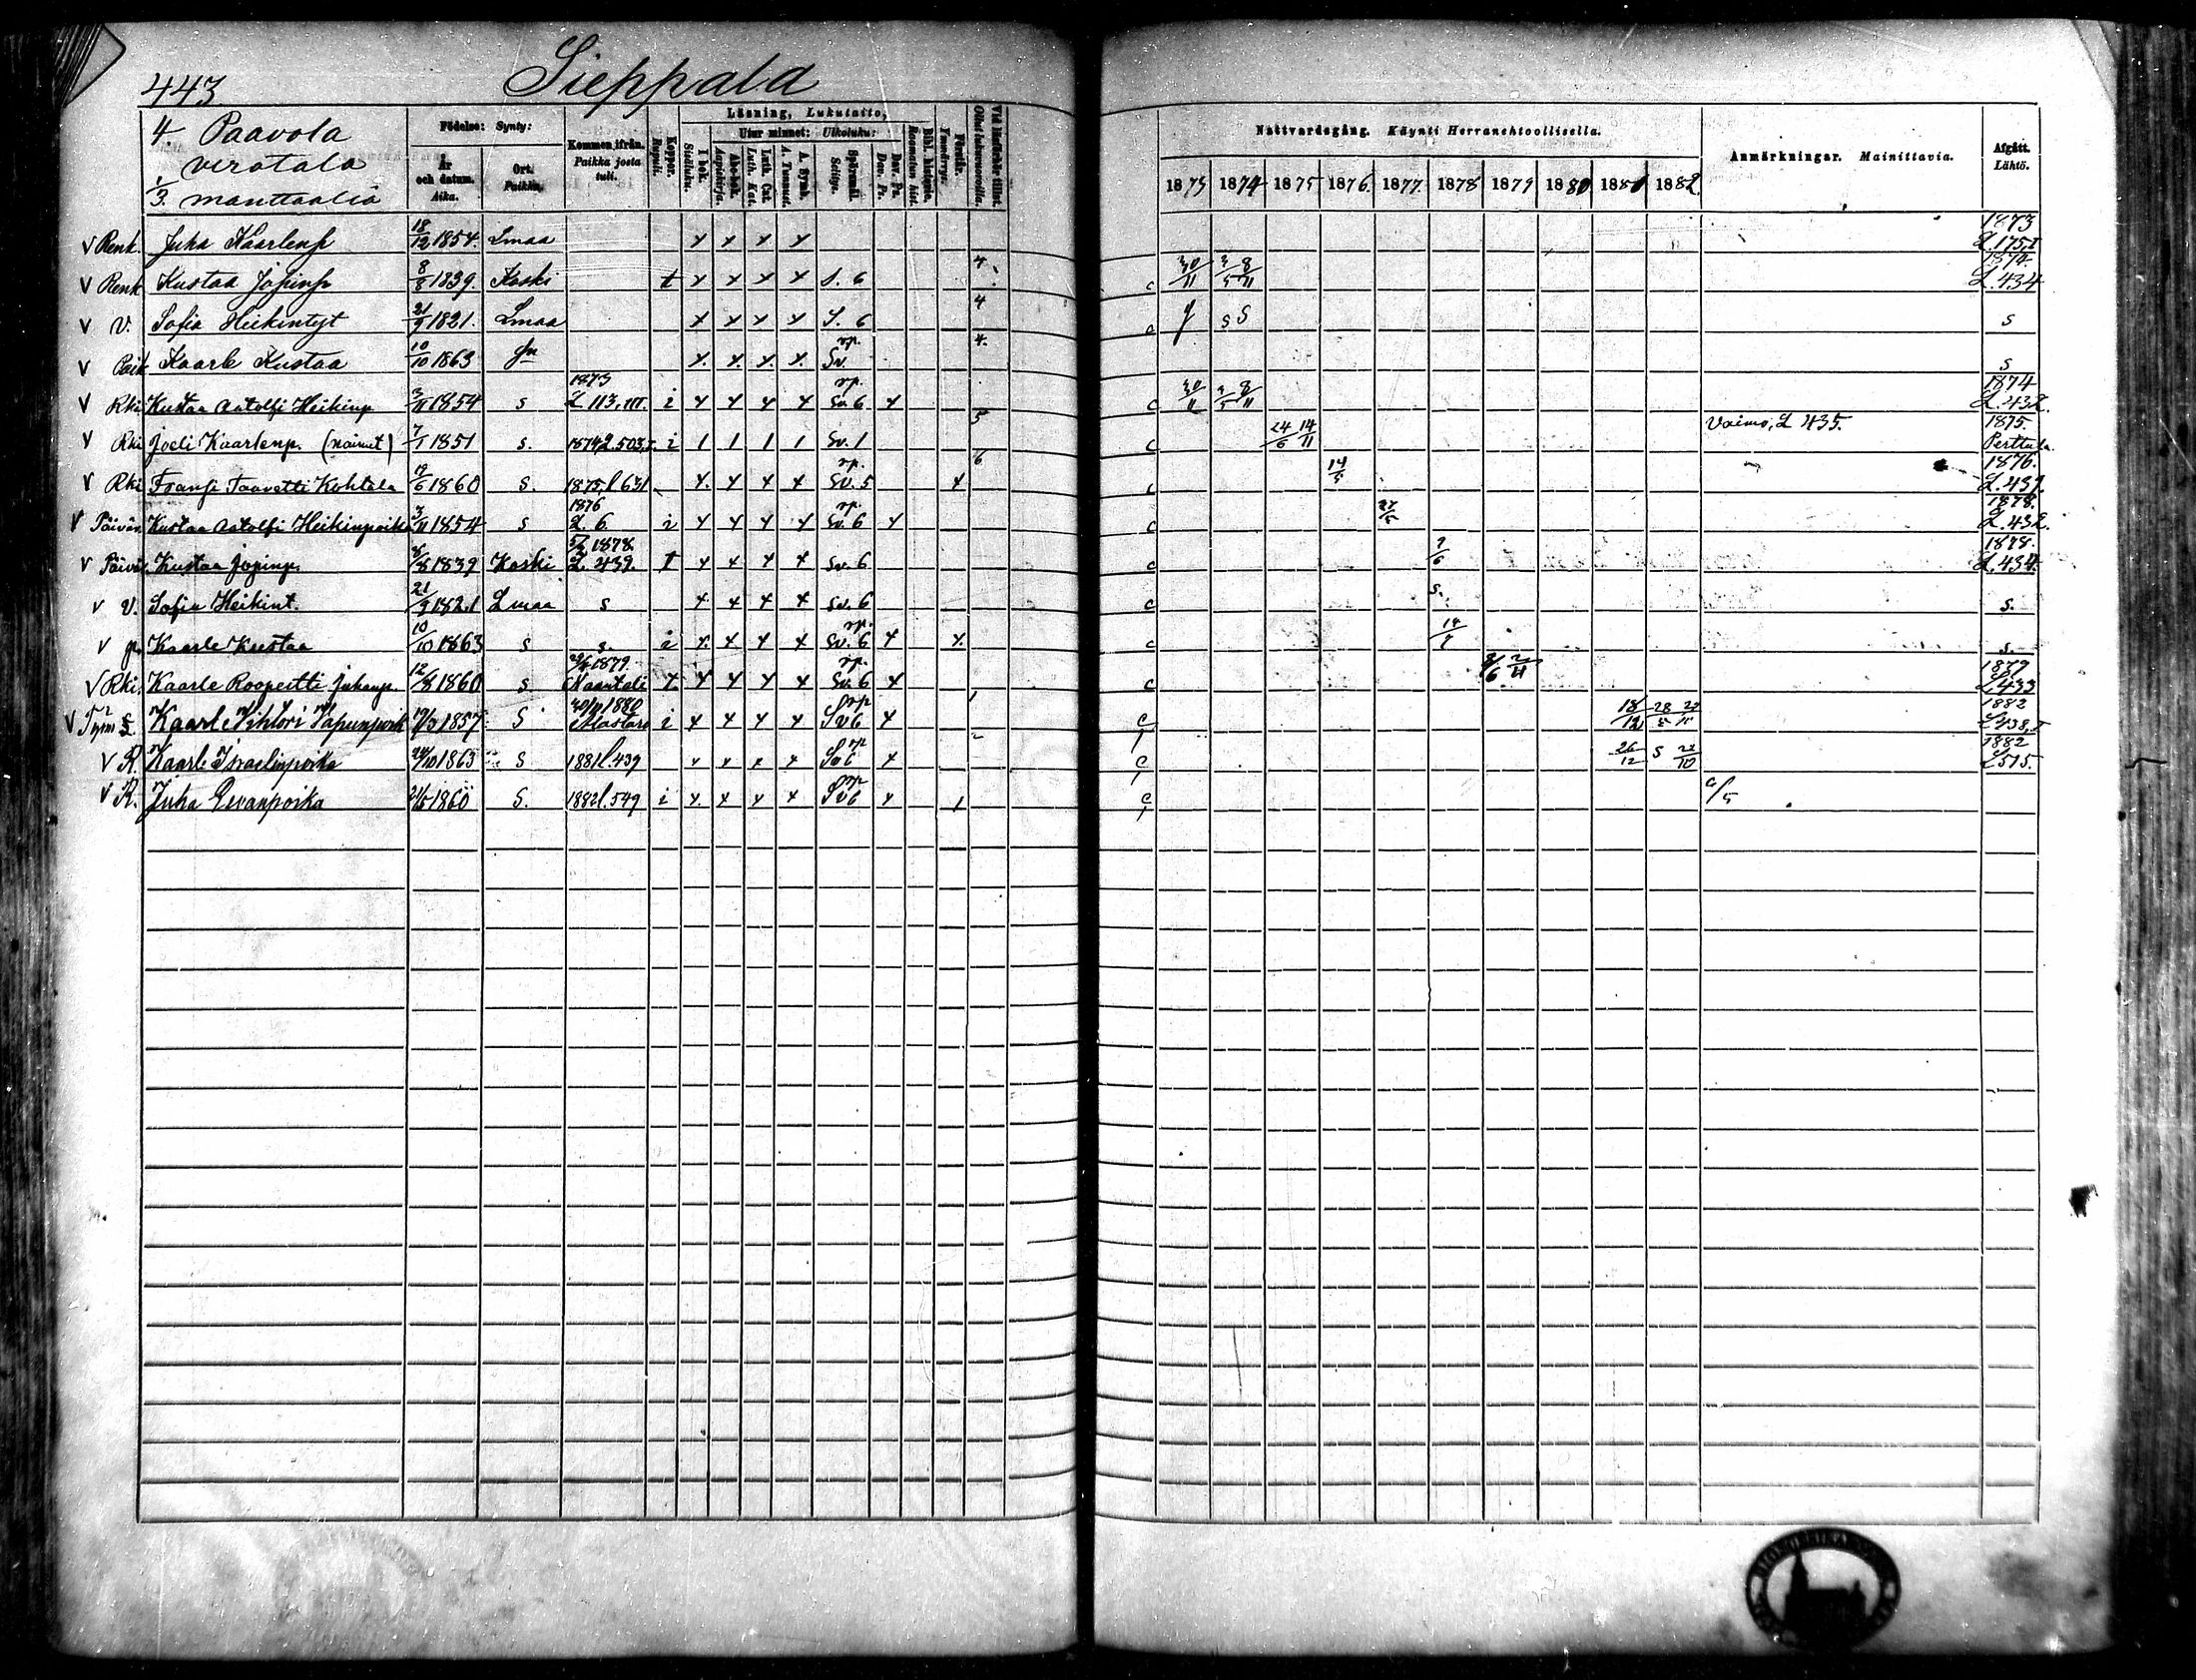 443 Sieppala
4. Paavola
verotalo
1/3. manttaalia
Födelse: Synty:
År och datum. Aika.
Ort. Paikka.
Kommen ifrån. Paikka josta tuli.
Koppor. Rupuli.
Läsning, Lukutaito,
I bok. Sisäluku.
Utur minnet: Ulkoluku:
Abc-bok. Aapiskirja.
Luth. Cat. Luth. Kat.
A. Symb. A. Tunnust.
Spörsmål. Selitys.
Dav. Ps. Dav. Ps.
Bibl. historie. Raamatun hist.
Förstår. Ymmärrys.
Nattvardsgång. Käynti Herranehtoollisella.
1873 1874 1875 1876. 1877. 1878 1879 1880 1881 1882.
Anmärkningar. Mainittavia.
Afgått. Lähtö.
v Renk. Juha Kaarlenp 18/12 1854. Lmaa x x x x 1873 L.175.I
v Renk Kustaa Josinp 8/8 1839. Koski t x x x x S. 6 4. c 30/11 3/5 8/11 1874 L.434
v V. Sofia Heikintyt 21/9 1821. Lmaa x x x x S. 6 4 c s S s
v Poik Kaarle Kustaa 10/10 1863 x. x. x. x. rp. Sv. 4. s
v Rki Kustaa Aatolfi Heikinp 3/11 1854 s 1873 L 113, III. i x x x x rp. Sv. 6 x c 30/11 8/11 1874 L.432.
v Rki Joeli Kaarlenp. (nainut) 7/1 1851 s. 1874 L.503,I. i 1 1 1 1 Sv. 1 5 c 24/6 14/11 Vaimo, L 435. 1875. Perttula
v Rki Fransi Taavetti Kohtala 19/6 1860 s. 1875, l 631 x. x x x rp. Sv. 5 x 6 c 14/5 1876. L.437.
v Päivän Kustaa Aatolfi Heikinpoika 3/11 1854 s 1876 L. 6. i x x x x rp. Sv. 6 x c 27/5 1878. L.432.
v Päivä Kustaa Josinp. 8/8 1839 Koski 1878. L. 439. t x x x x Sv. 6 c 9/6 1878. L.434.
v V. Sofia Heikint. 21/9 1821 Lmaa s x x x x Sv. 6 c s. s.
v p. Kaarle Kustaa 10/10 1863 s s. i x. x x x rp. Sv. 6 x x. c s.
v Rki. Kaarle Roopertti Juhanp. 12/8 1860 s 1879. Naantali t. x x x x rp. Sv. 6 x c 8/6 2/11 1879 L433
v Kaarle Vihtori Tapanpoik 1857 S 30/11 1880 Alastaro i x x x x rp Sv6 x 1 c 18/12 28/5 1882 L438,I
v R. Kaarle Israelinpoika 24/10 1863 S 1881 l.439 x x x x rp Sv6 x 2 c 26/12 S 22/10 1882 L515.
v R. Juha Eevanpoika 21/5 1860 S. 1882 l.549 i x. x x x rp Sv6 x 1 c